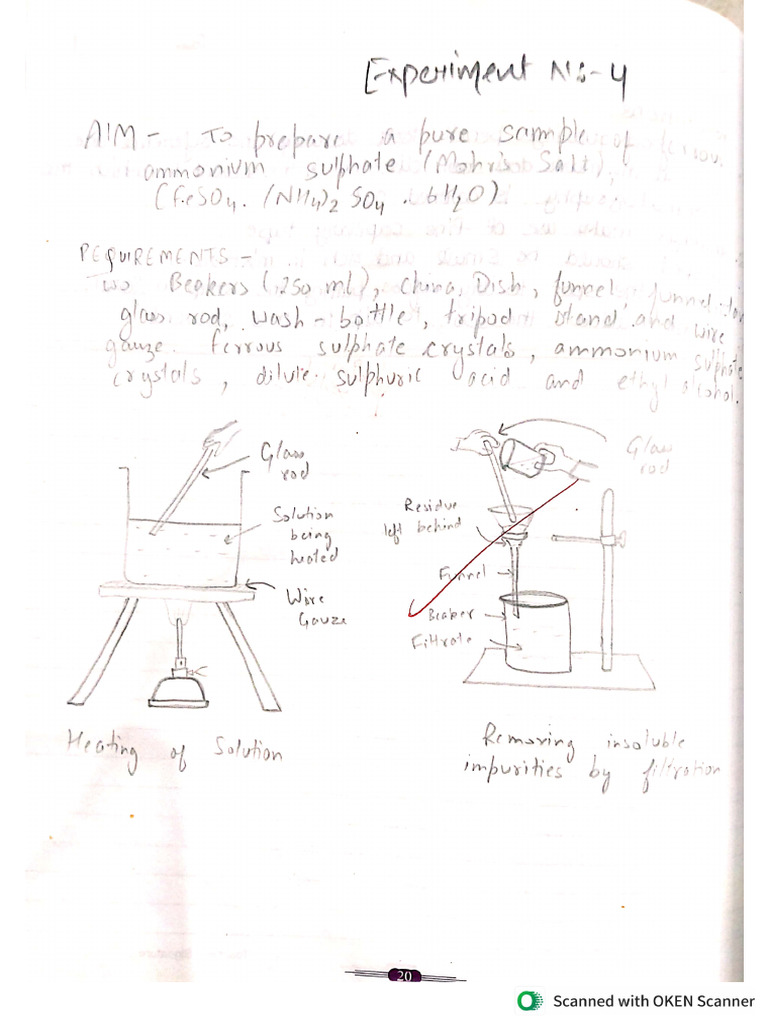 Experiment No-4
AIM - To prepare a pure sample of ferrous
ammonium sulphate (Mohr's Salt),
(FeSO4. (NH4)2 SO4 . 6H2O)
REQUIREMENTS -
Beakers (250 ml), China Dish, funnel, funnel-
glass rod, wash-bottle, tripod stand and wire
gauze. ferrous sulphate crystals, ammonium sulphate
crystals, dilute sulphuric acid and ethyl alcohol.
Glass
rod
Solution
being
heated
Wire
Gauze
Heating of Solution
Glass
rod
Residue
left behind
Funnel
Beaker
Filtrate
Removing insoluble
impurities by filtration
20
Scanned with OKEN Scanner